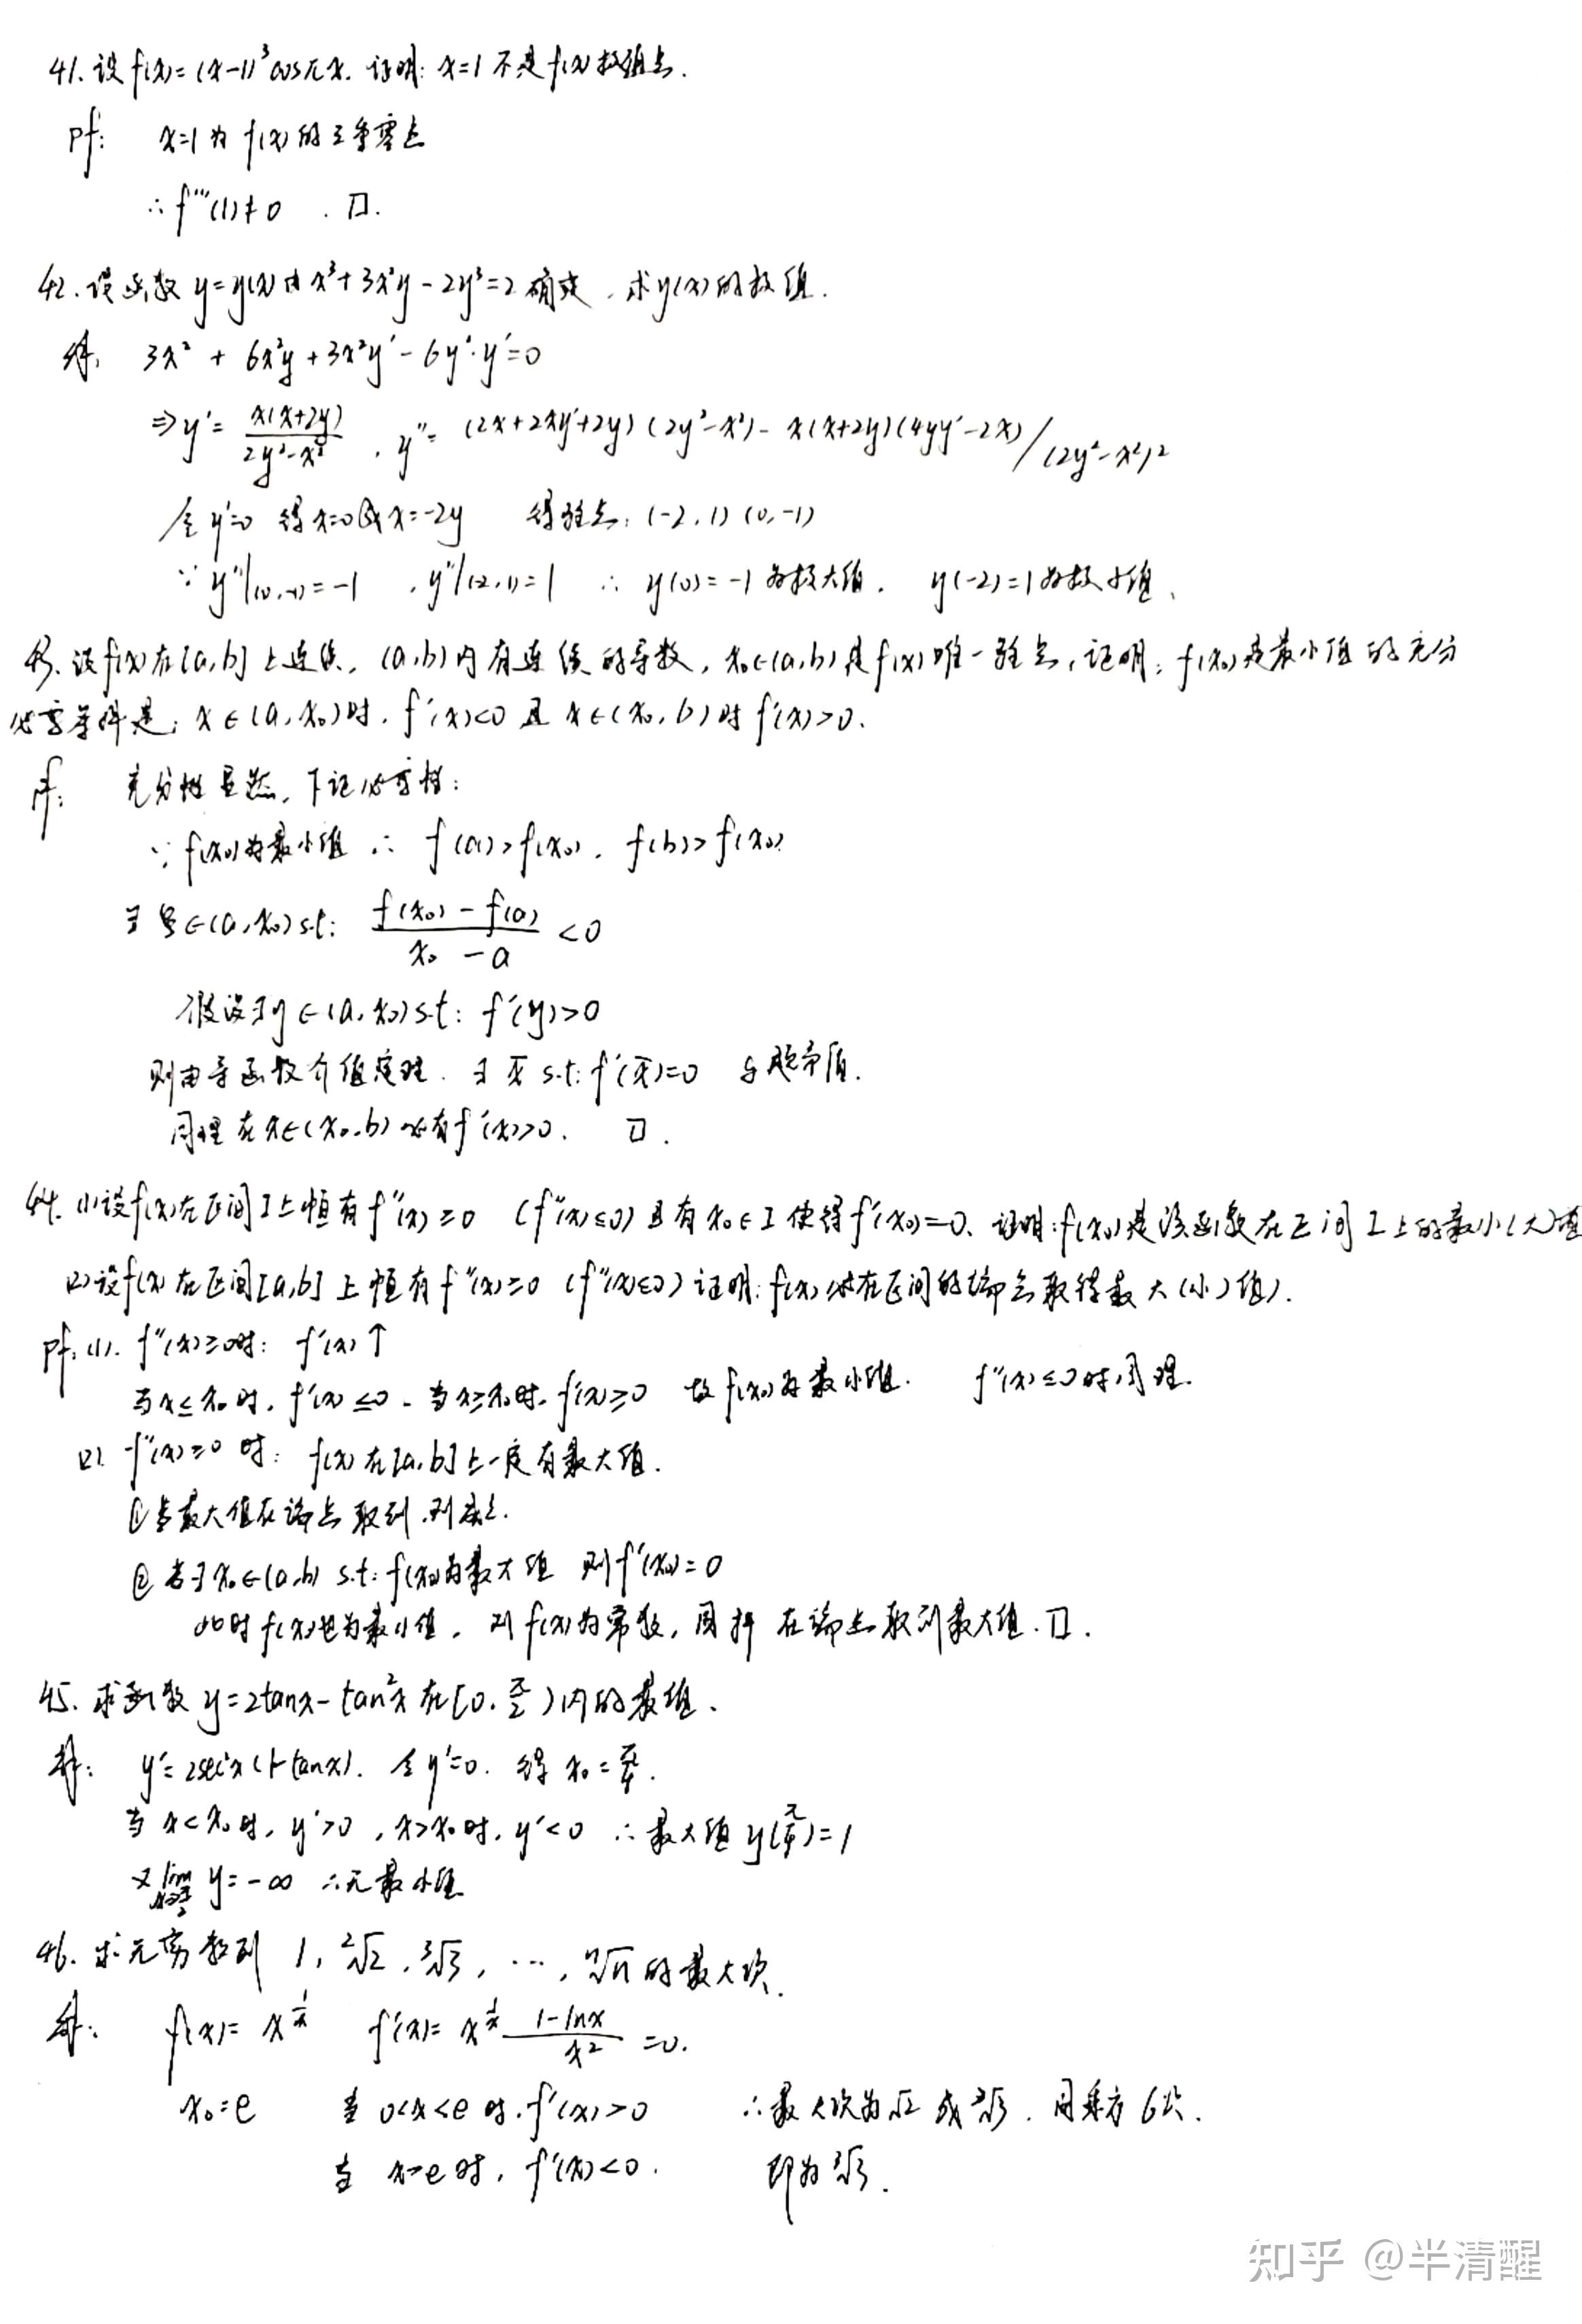 41. 设f(x)=(x-1)³cosπx. 证明: x=1不是f(x)极值点.
pf: x=1为f(x)的三重零点
∴f'''(1)≠0 . □.
42. 设函数y=y(x)由x³+3x²y-2y³=2确定, 求y(x)的极值.
解: 3x² + 6x²y + 3x²y' - 6y²·y' = 0
⇒y' = x(x+2y)/(2y²-x²), y''= (2x+2xy'+2y)(2y²-x²) - x(x+2y)(4yy'-2x)/(2y²-x²)²
令y'=0 得x=0或x=-2y 得驻点: (-2,1) (0,-1)
∵ y''|(0,-1) = -1 , y''|(-2,1) = 1 ∴ y(0)=-1为极大值. y(-2)=1为极小值.
43. 设f(x)在[a,b]上连续, (a,b)内有连续的导数, x₀∈(a,b)是f(x)唯一驻点, 证明: f(x₀)是最小值的充分
必要条件是: x∈(a,x₀)时, f'(x)<0 且 x∈(x₀,b)时f'(x)>0.
pf: 充分性显然, 下证必要性:
∵ f(x₀)为最小值 ∴ f(a)>f(x₀), f(b)>f(x₀)
∃ξ∈(a,x₀) s.t: (f(x₀)-f(a))/(x₀-a) <0
假设∃y∈(a,x₀) s.t: f'(y)>0
则由导函数介值定理, ∃x̄ s.t: f'(x̄)=0 与题矛盾.
同理在x∈(x₀,b)必有f'(x)>0. □.
44. (1)设f(x)在区间I上恒有f''(x)≥0 (f''(x)≤0)且有x₀∈I使得f'(x₀)=0, 证明: f(x₀)是该函数在区间I上的最小(大)值
(2)设f(x)在区间[a,b]上恒有f''(x)≥0 (f''(x)≤0)证明: f(x)必在区间的端点取得最大(小)值).
pf: (1). f''(x)≥0时: f'(x)↑
当x≤x₀时, f'(x)≤0. 当x≥x₀时, f'(x)≥0 故f(x₀)为最小值. f''(x)≤0时同理.
(2). f''(x)≥0时: f(x)在[a,b]上一定有最大值.
①若最大值在端点取到, 则成立.
②若∃x₀∈(a,b) s.t: f(x₀)为最大值 则f'(x₀)=0
此时f(x₀)也为最小值, 则f(x)为常数, 同样 在端点取到最大值. □.
45. 求函数y=2tanx-tan²x在[0,π/2)内的最值.
解: y'=2sec²x(1-tanx). 令y'=0. 得x₀=π/4.
当x<x₀时, y'>0 , x>x₀时, y'<0 ∴最大值y(π/4)=1
又lim x→π/2 y=-∞ ∴无最小值
46. 求无穷数列 1, ²√2, ³√3, ⋯, ⁿ√n的最大项.
解: f(x)=x^(1/x) f'(x)=x^(1/x) (1-lnx)/x² =0.
x₀=e 当 0<x<e时, f'(x)>0 ∴最大项为√2或³√3. 同乘方6次.
当 x>e时, f'(x)<0. 即为³√3.
知乎 @半清醒